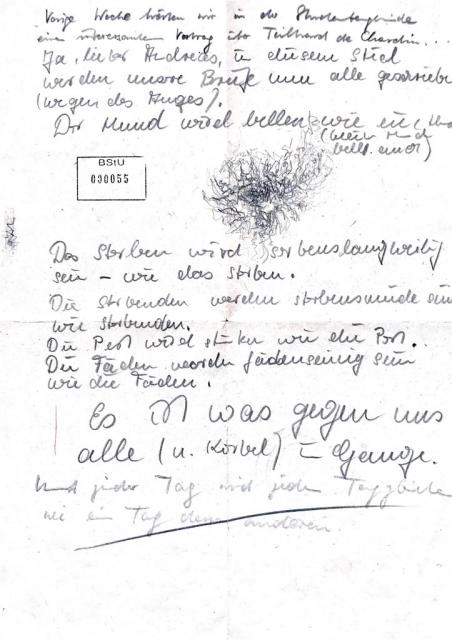 Vorige Woche hörten wir in der Studentengemeinde
einen interessanten Vortrag über Teilhard de Chardin...
Ja, lieber Andreas, in diesem Stiel
werden unsere Briefe nun alle geschrieben
(wegen des Auges).
Der Mund wird bellen wie ein
(
bellt auch)
BStU
000055
Das Sterben wird sterbenslangweilig
sein – wie das sterben.
Die sterbenden werden sterbensmüde sein
wie sterbenden.
Die Pest wird stinken wie die Pest.
Die Fäden werden fädenseinig sein
wie die Fäden.
Es ist was gegen uns
alle (u. Körbel) in Gange.
Und jeder Tag wird jedem Tag
wie ein Tag dem anderen.